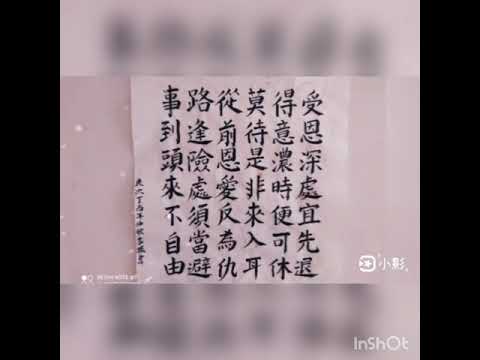 受恩深處宜先退
得意濃時便可休
莫待是非來入耳
從前恩愛反為仇
路逢險處須當避
事到頭來不自由
小影
InShOt